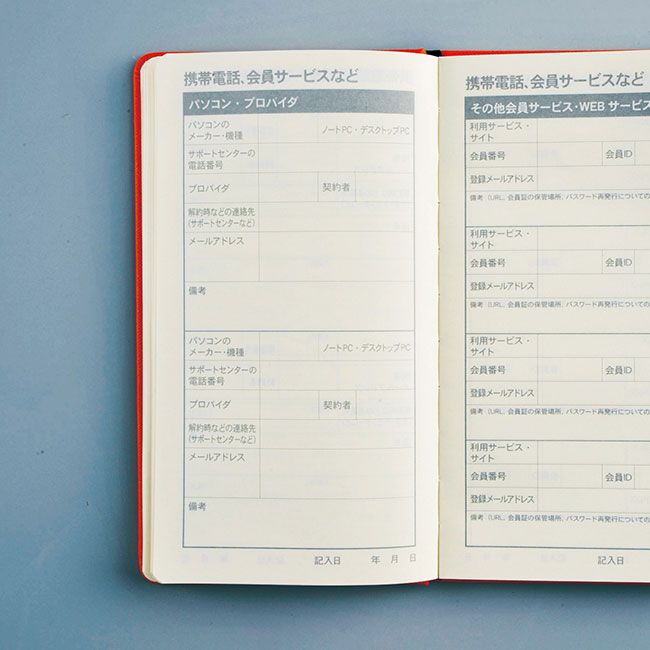 携帯電話、会員サービスなど
パソコン・プロバイダ
パソコンの
メーカー・機種
ノートPC・デスクトップPC
サポートセンターの
電話番号
プロバイダ
契約者
解約時などの連絡先
(サポートセンターなど)
メールアドレス
備考
パソコンの
メーカー・機種
ノートPC・デスクトップPC
サポートセンターの
電話番号
プロバイダ
契約者
解約時などの連絡先
(サポートセンターなど)
メールアドレス
備考
記入日 年 月 日
携帯電話、会員サービスなど
その他会員サービス・WEB サービス
利用サービス・
サイト
会員番号
会員ID
登録メールアドレス
備考 (URL、会員証の保管場所、パスワード再発行についての
利用サービス・
サイト
会員番号
会員ID
登録メールアドレス
備考 (URL、会員証の保管場所、パスワード再発行についての
利用サービス・
サイト
会員番号
会員ID
登録メールアドレス
備考 (URL、会員証の保管場所、パスワード再発行についての
利用サービス・
サイト
会員番号
会員ID
登録メールアドレス
備考 (URL、会員証の保管場所、パスワード再発行についての
記入日